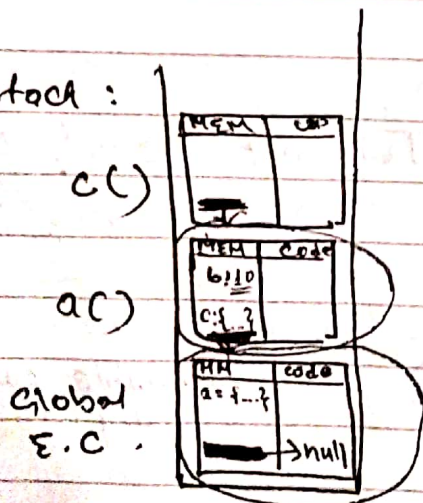 tack :
MEM
c()
MEM Code
b:10
c:{...}
a()
Global
E.C.
MM code
a = {...}
→null